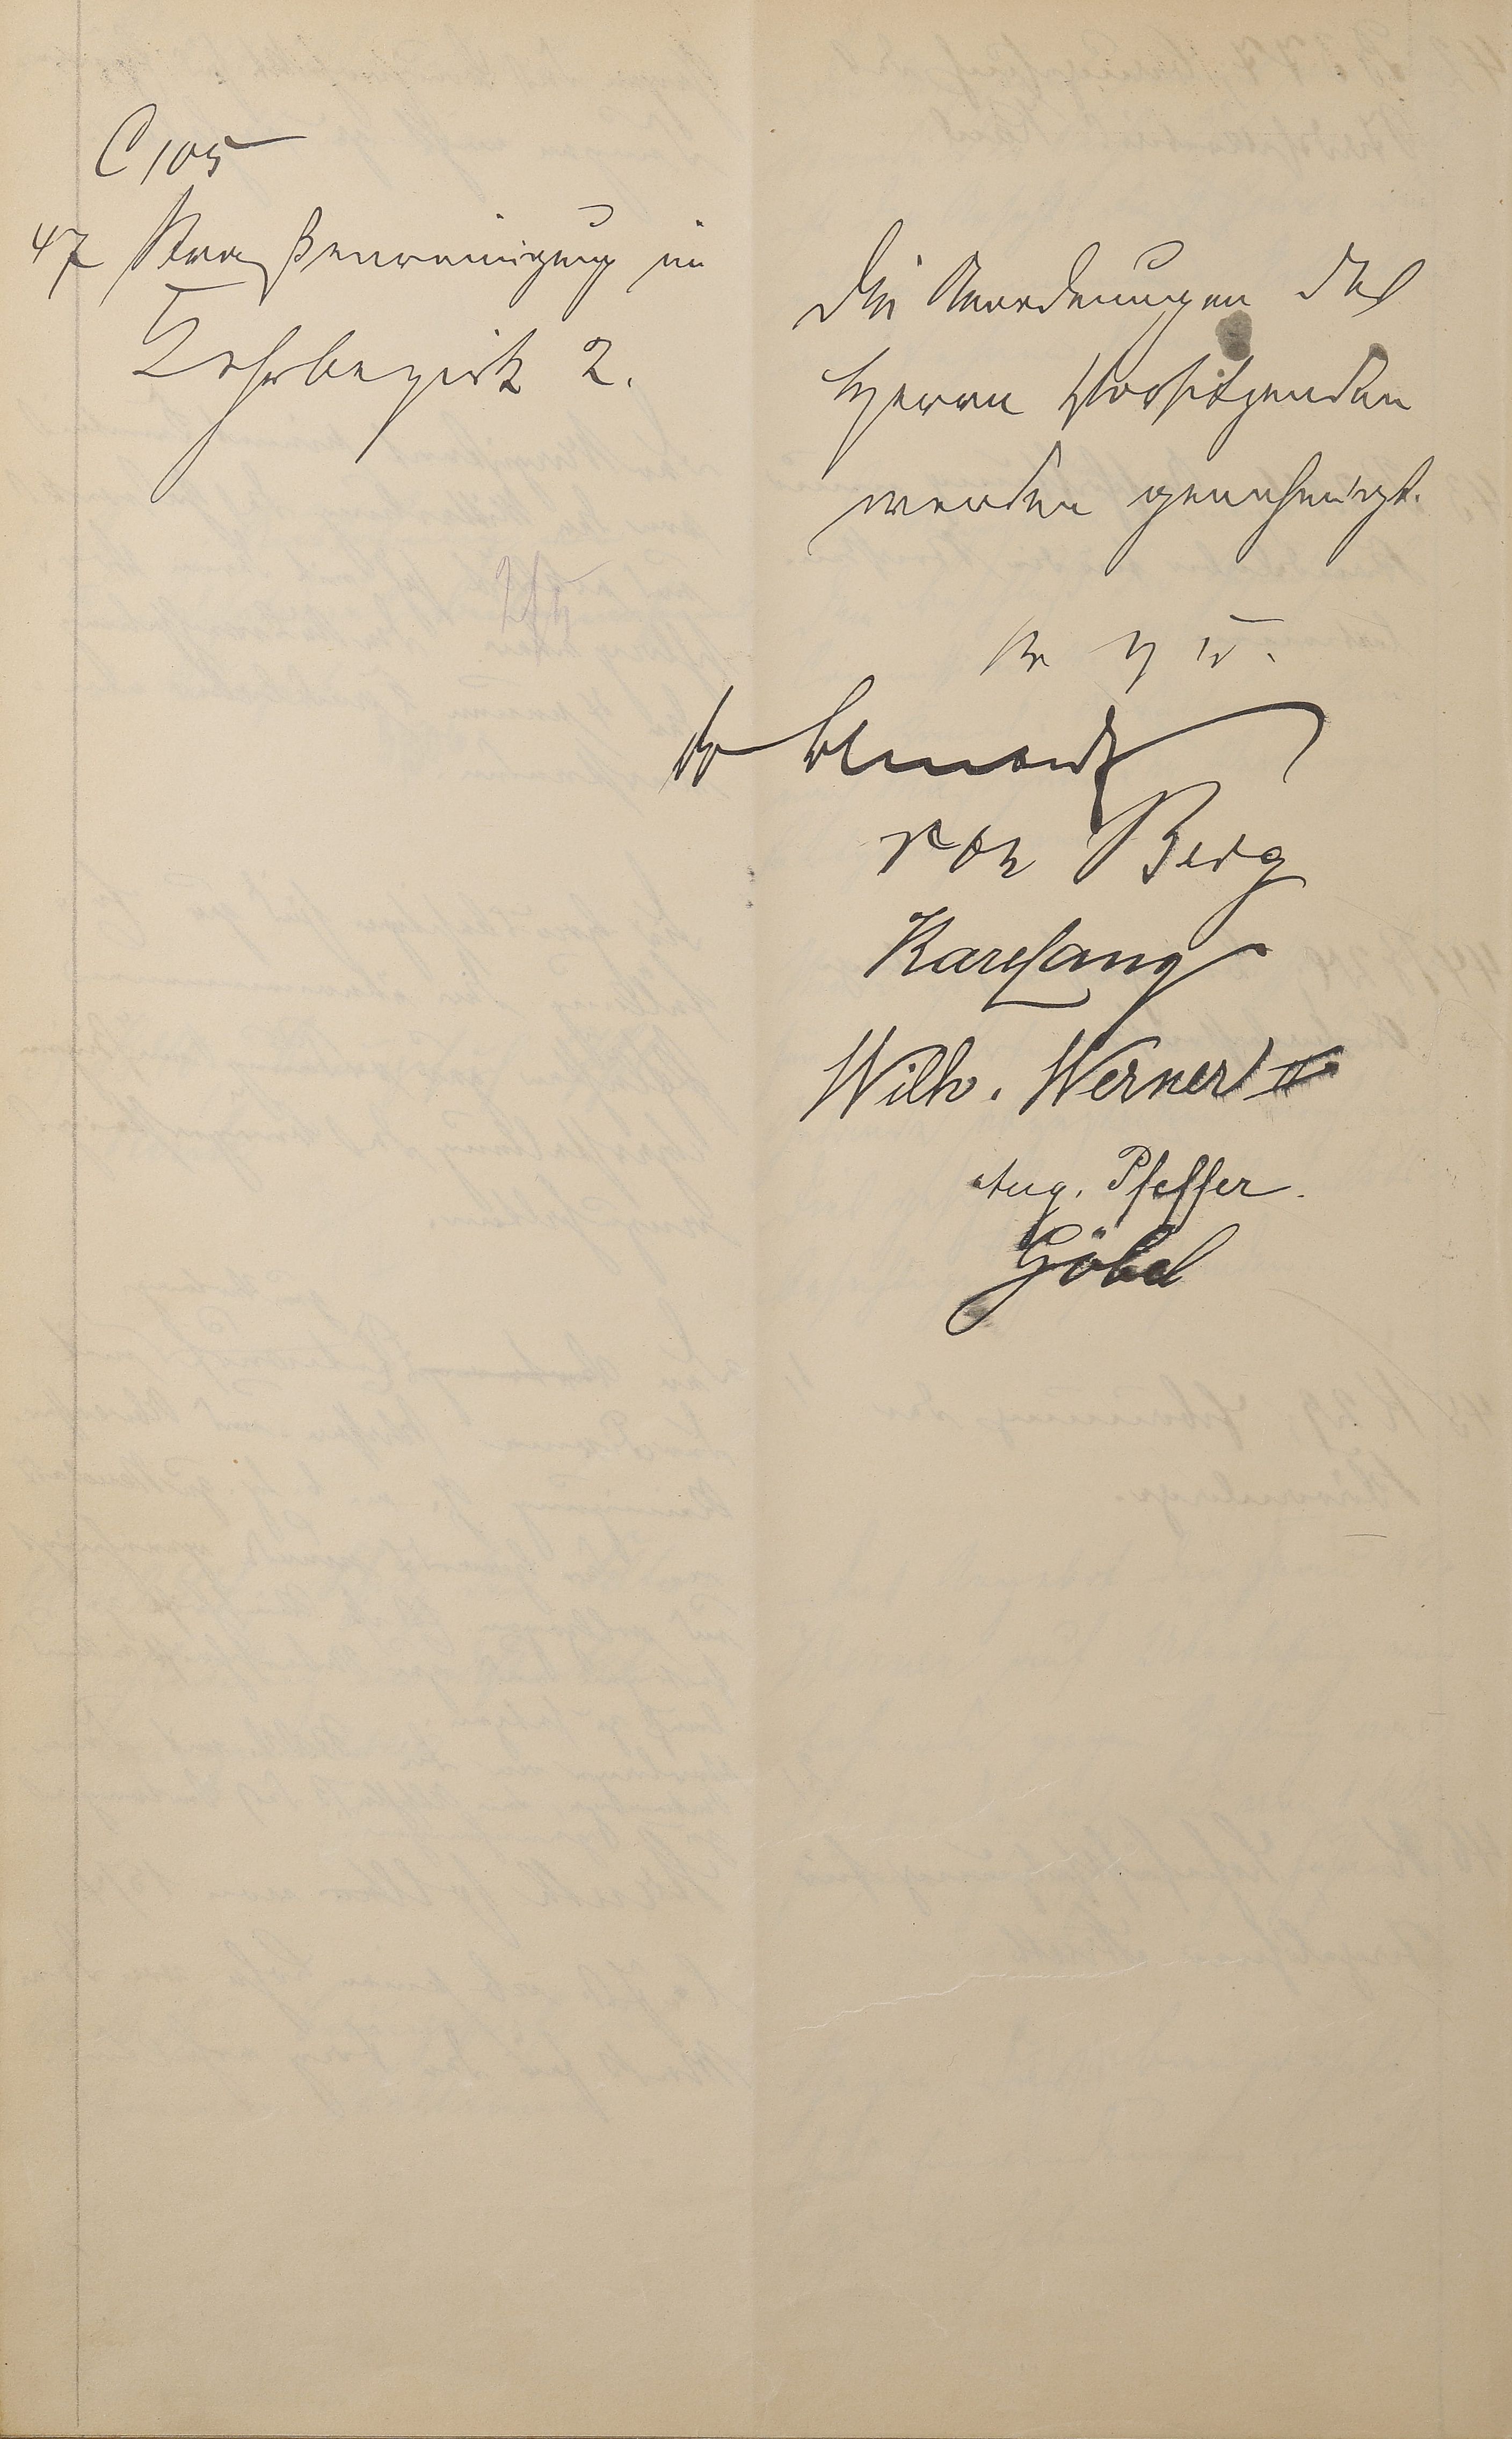 C 105
47 Straßenreinigung im
Kehrbezirk 2.
Die Anordnungen des
Herrn Vorsitzenden
werden genehmigt.
v. g. u.
von Berg
Karl Lang
Wilh. Werner II
Aug. Pfeffer.
Göbel